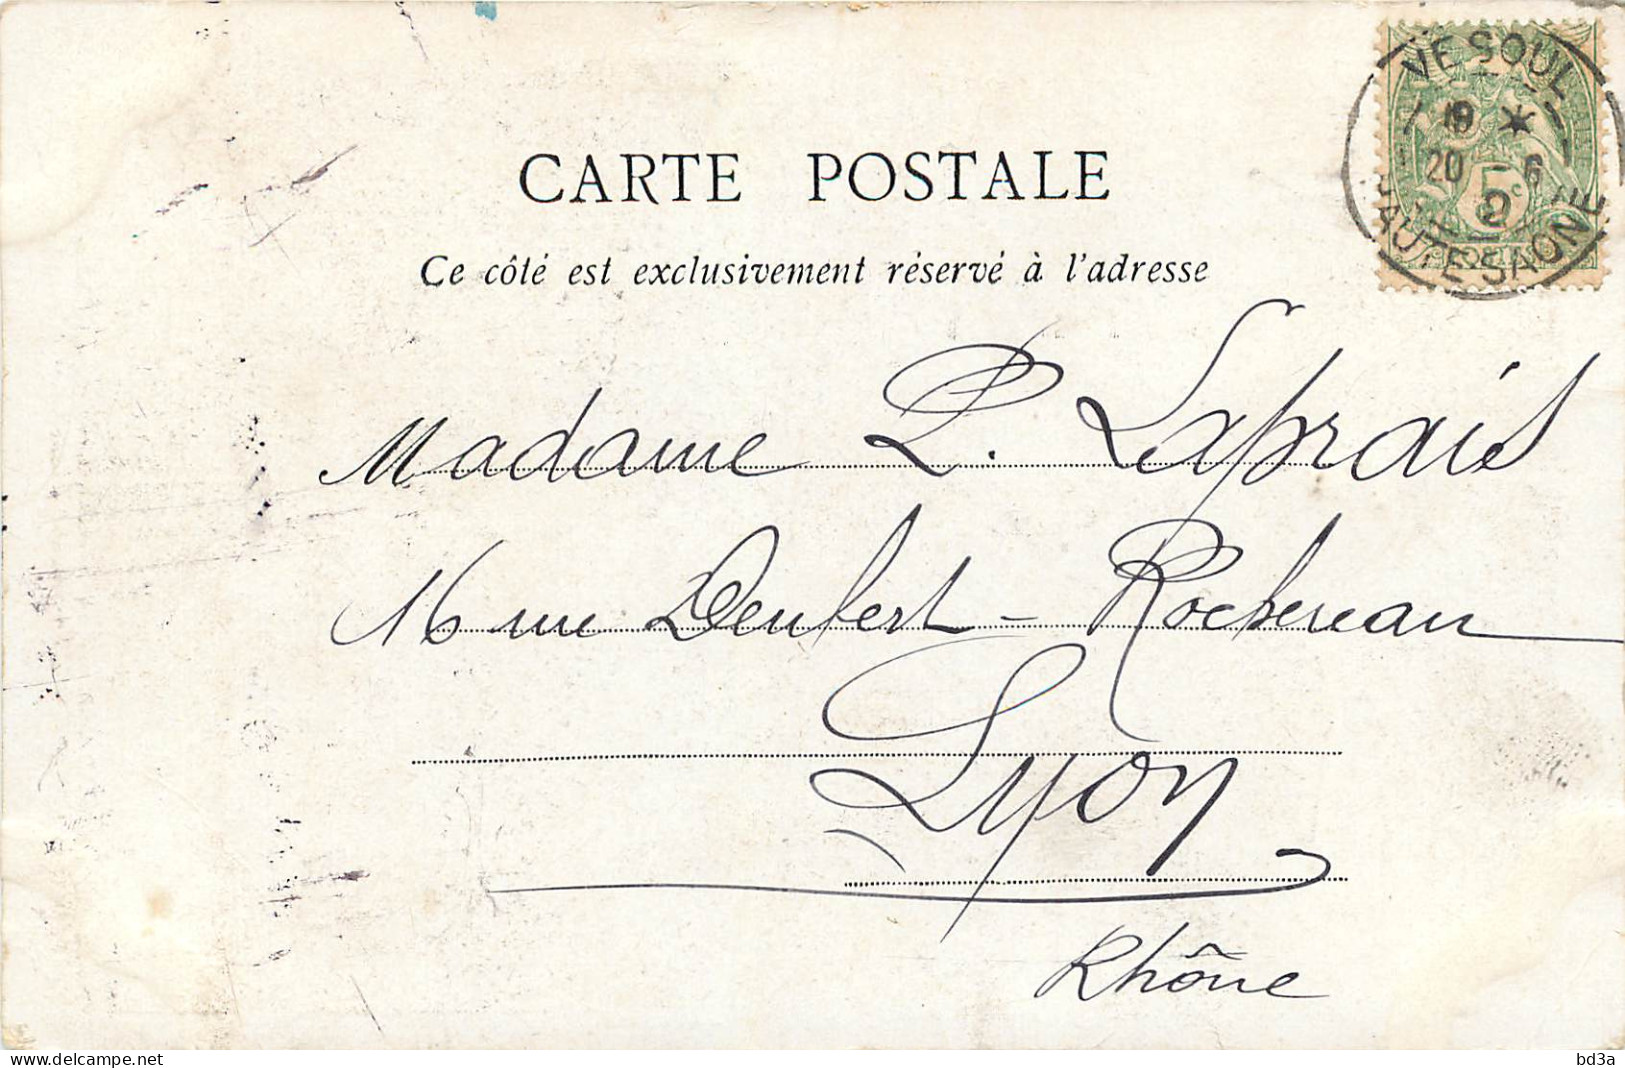 CARTE POSTALE
Ce côté est exclusivement réservé à l'adresse
VESOUL
20 6
HAUTE SAONE
5c
Madame L. Laprais
16 rue Denfert-Rochereau
Lyon
Rhône
www.delcampe.net
bd3a